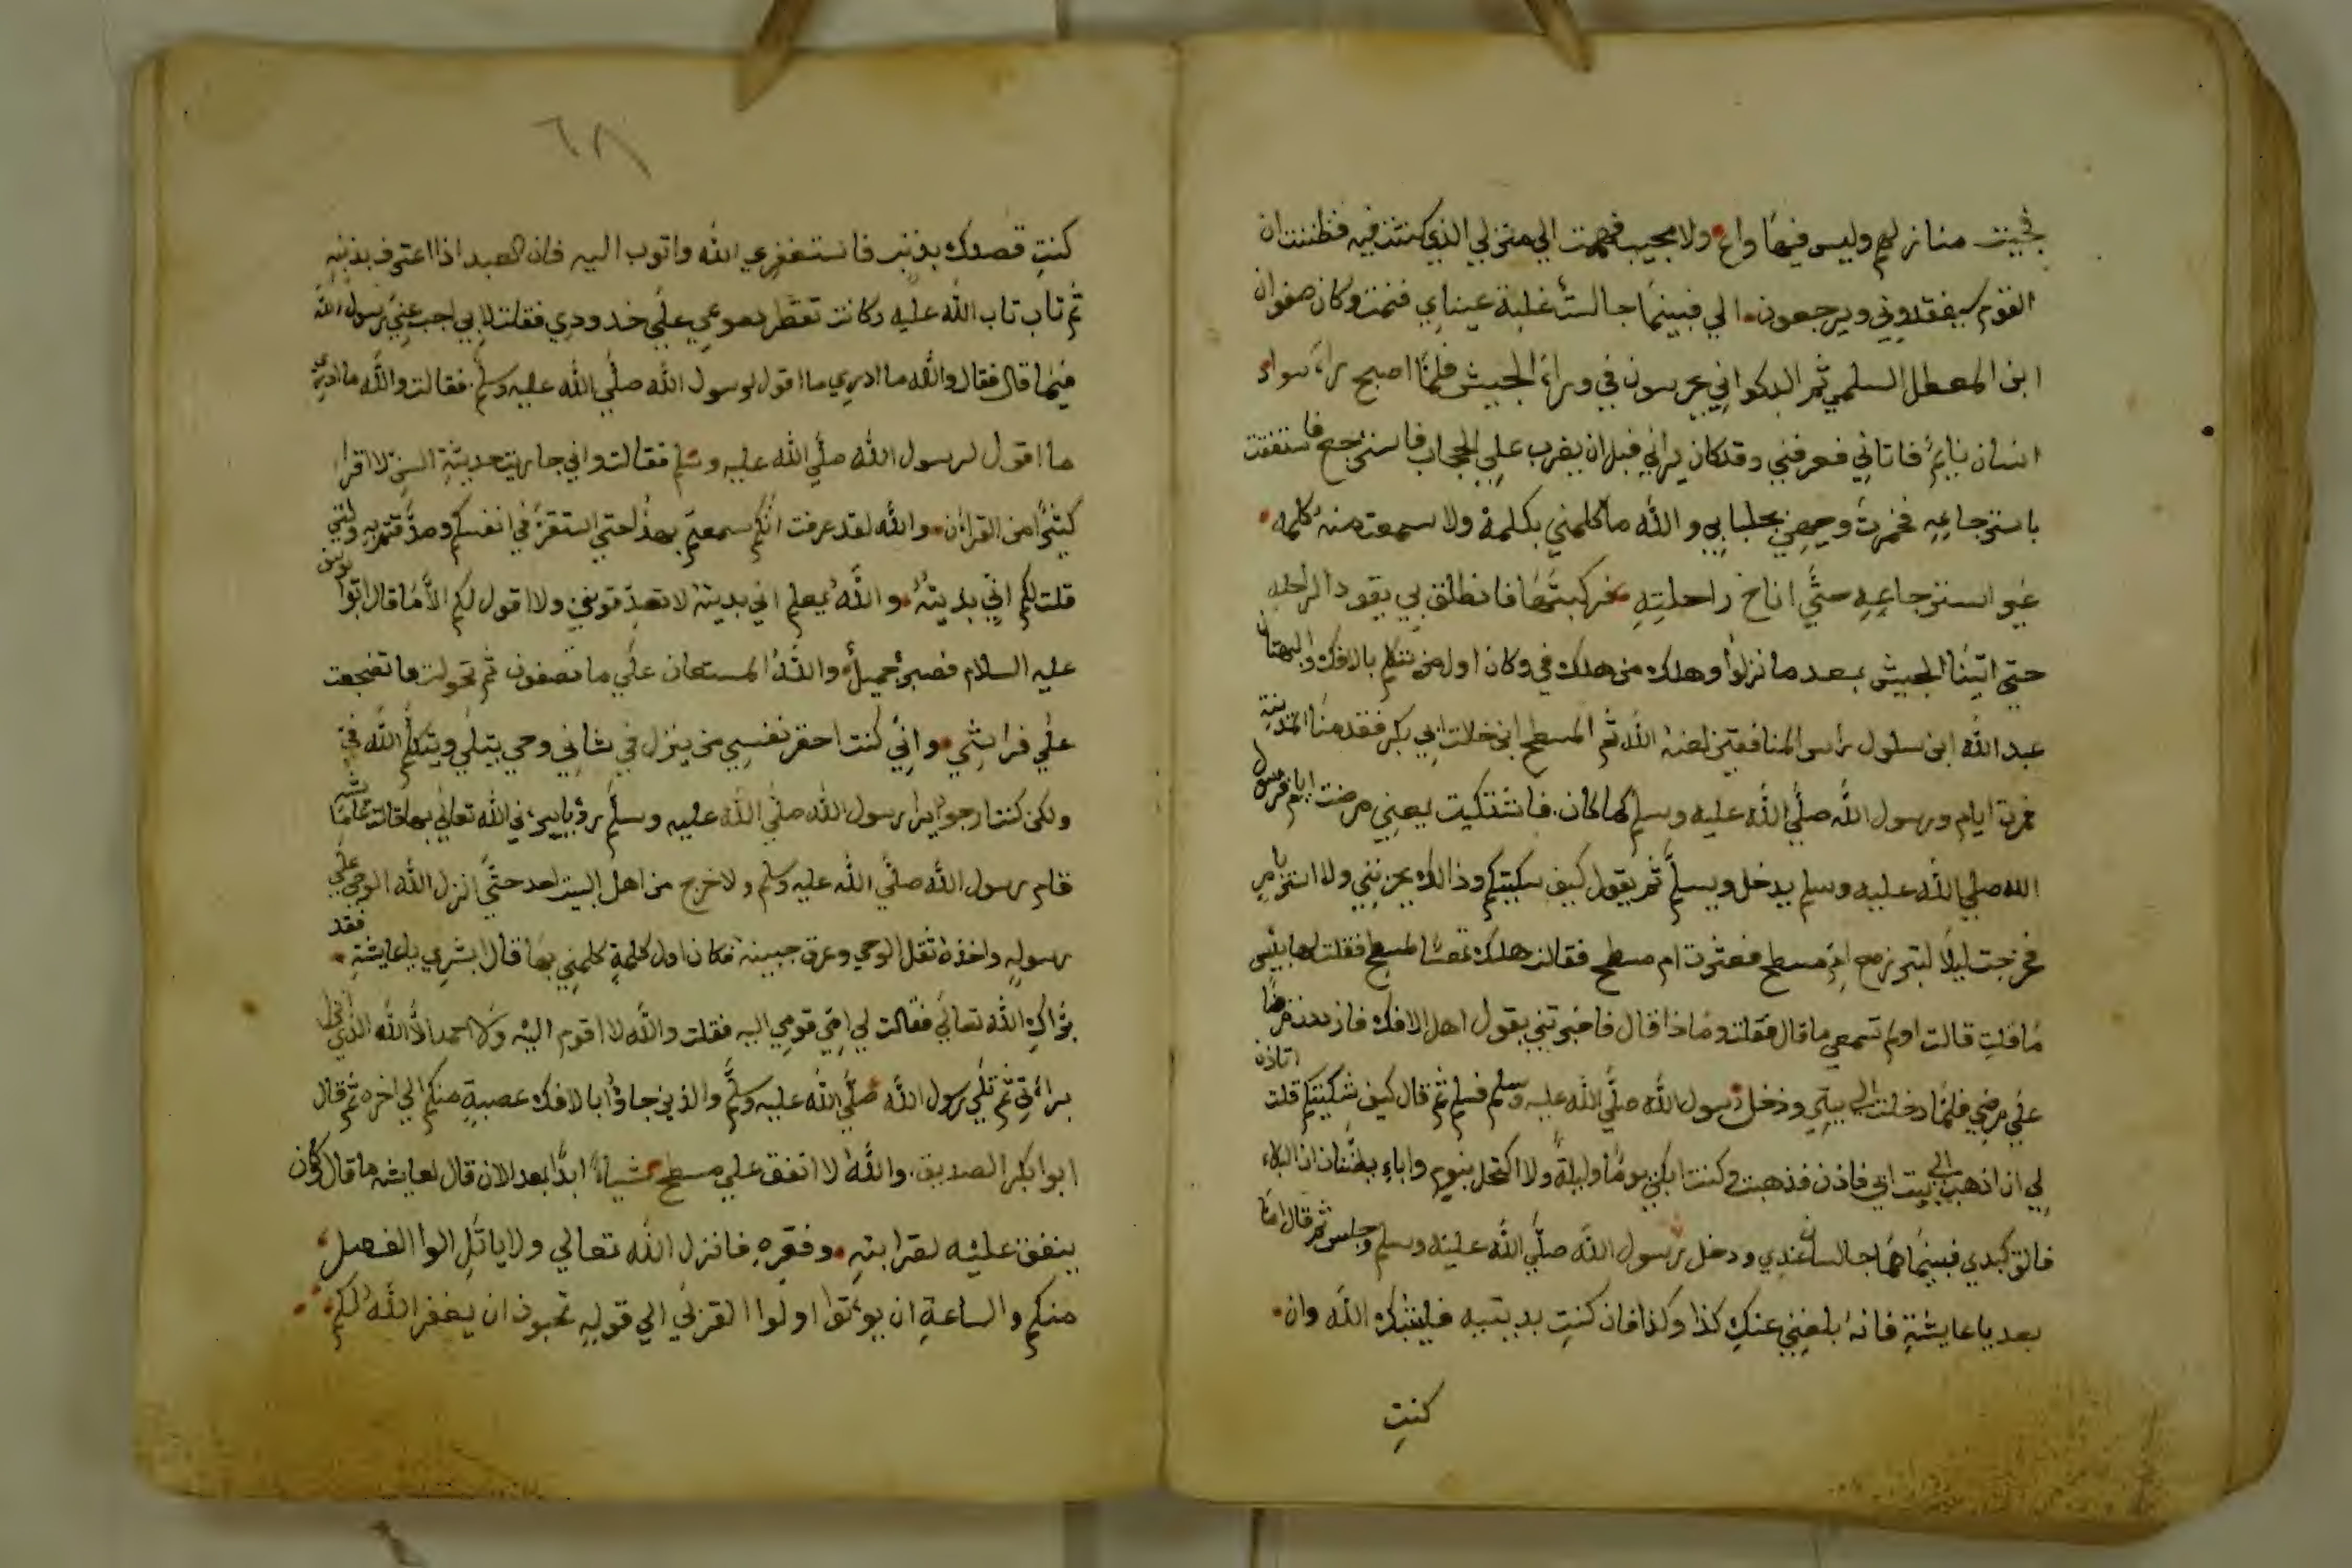 فجيت منازلهم وليس فيها واع ولا مجيب فهمت الي منزلي الذي كنت فيه فظننت ان
القوم سيفقدوني ويرجعون الي فبينما جالست غلبة عيناي فنمت وكان صفوان
ابن المعطل السلمي ثم الدكواني عرسون في وراء الجيش فلما اصبح براء سواء
انسان نايم فاتاني فعرفني وقد كان يراني قبل ان يضرب علي الحجاب فاسترجح فاستفقت
باسترجاعه فخمرت وجهي بجلبابي والله ما كلمني بكلمة ولا سمعت منه كلمه
غير استرجاعه حتي اناخ راحلته فركبتها فانطلق بي يقود الراحله
حتي اتينا الجيش بعد ما نزلوا وهلك من هلك في وكان اول من تكلم بالافك والبهتان
عبد الله ابن سلول براس المنافقين لعنه الله ثم المسطح ابن خلات ابي بكر فقدمنا المدينة
ايام ورسول الله صلي الله عليه وسلم كما كان فاشتكيت يعني مرضت ايام فرسول
الله صلي الله عليه وسلم يدخل ويسلم ثم يقول كيف سكيتكم وذالك يحزنني ولا
فخرجت ليلا مع ام مسطح فعثرت ام مسطح فقالت هلك تعسا لمسطح فقلت لها بيس
ما قلت قالت اولم تسمعي ما قال فقلت وماذا قال فاخبرتني بقول اهل الافك فازددت مرضا
علي مرضي فلما دخلت الي بيتي ودخل رسول الله صلي الله عليه وسلم فسلم ثم قال كيف شكيتكم قلت اتاذن
لي ان اذهب الي بيت ابي فاذن فذهبت وكنت ابكي يوما وليلة ولا اكتحل بنوم واباء يظنان ان البكاء
فالق كبدي فبينما هما جالسان عندي ودخل رسول الله صلي الله عليه وسلم وجلس ثم قال اما
بعد يا عايشة فانه بلغني عنك كذا وكذا فان كنت بديتيه فليبئك الله وان
كنت
٦٨
كنت قصدك بذنب فاستغفري الله واتوب اليه فان العبد اذا اعترف بذنبه
ثم تاب تاب الله عليه وكانت تقطر دموعي علي خدودي فقلت لابي اجب عني رسول الله
فيما قال فقال والله ما ادري ما اقول لرسول الله صلي الله عليه وسلم فقالت والله ما ادري
ما اقول لرسول الله صلي الله عليه وسلم فقالت واني جاريت حديثة السن لا اقرا
كيثيرا من القران والله لقد عرفت انكم سمعتم بهذا حتي استقر في انفسكم وصدقتم به ولئن
قلت لكم اني بديته والله يعلم اني بديتة لا تصدقونني ولا اقول لكم الا ما قال ابوا يوسف
عليه السلام فصبر جميل والله المستعان علي ما تصفون ثم تحولت فاتضجعت
علي فراشي واني كنت احقر نفسي من ينزل في شاني وحي يتلي ويتكلم الله في
ولكن كنت ارجوا يرا رسول الله صلي الله عليه وسلم رؤيا يبرءني الله تعالي بها قالت عايشه ما
قام رسول الله صلي الله عليه وسلم ولا خرج من اهل البيت احد حتي انزل الله الوحي علي
رسوله واخذه ثقل الوحي وعرق جبينه فكان اول كلمة كلمني بها قال ابشري يا عايشة فقد
براك الله تعالي فقالت لي امي قومي اليه فقلت والله لا اقوم اليه ولا احمد الا الله الذي انزل
براءتي ثم تلي رسول الله صلي الله عليه وسلم والذين جاؤا بالافك عصبة منكم الي اخره ثم قال
ابوا بكر الصديق والله لا انفق علي مسطح شياء ابدا بعد الان قال لعايشه ما قال وكان
ينفق عليه لقرابته وفقره فانزل الله تعالي ولا ياتل الوا الفصل
منكم والساعة ان يؤتوا اولوا القربي الي قوله تحبون ان يغفر الله لكم